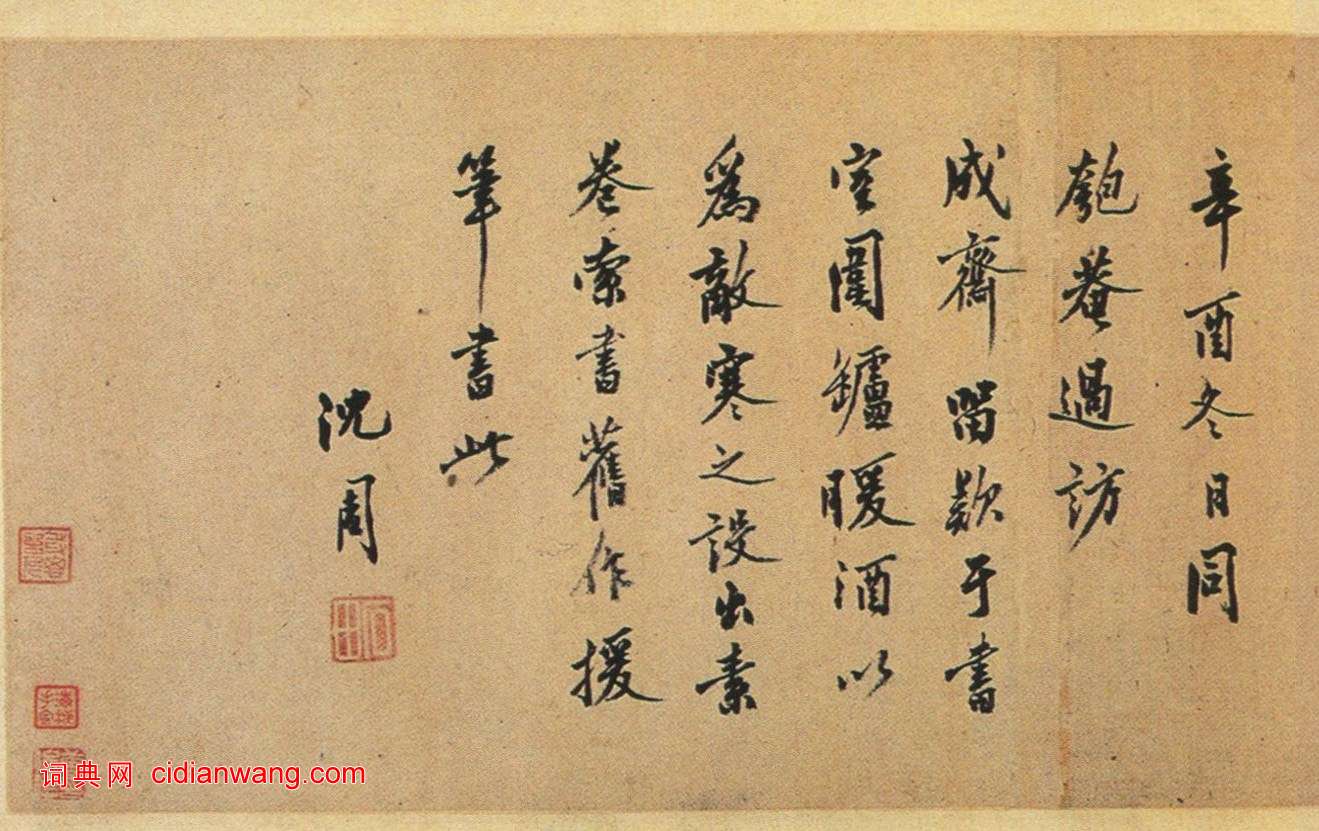 辛酉冬日同
匏菴過訪
成齋留欵于書
室圍鑪暖酒以
爲敵寒之設出素
卷索書舊作援
筆書此
沈周
词典网 cidianwang.com